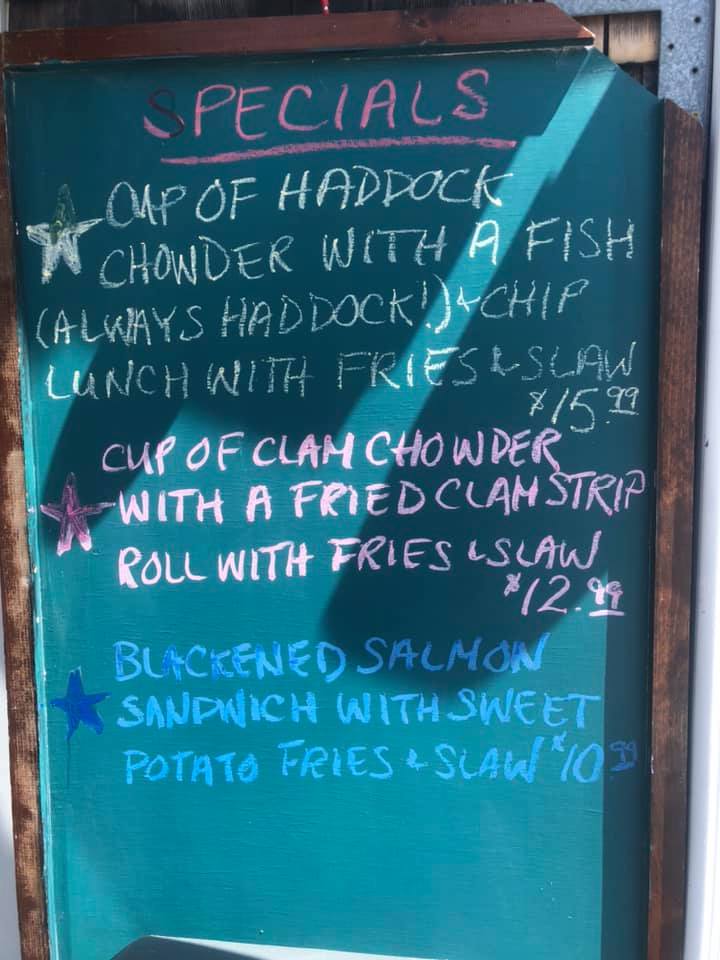 SPECIALS
CUP OF HADDOCK
CHOWDER WITH A FISH
(ALWAYS HADDOCK!) & CHIP
LUNCH WITH FRIES & SLAW
$15.99
CUP OF CLAM CHOWDER
WITH A FRIED CLAM STRIP
ROLL WITH FRIES & SLAW
$12.99
BLACKENED SALMON
SANDWICH WITH SWEET
POTATO FRIES & SLAW $10.99